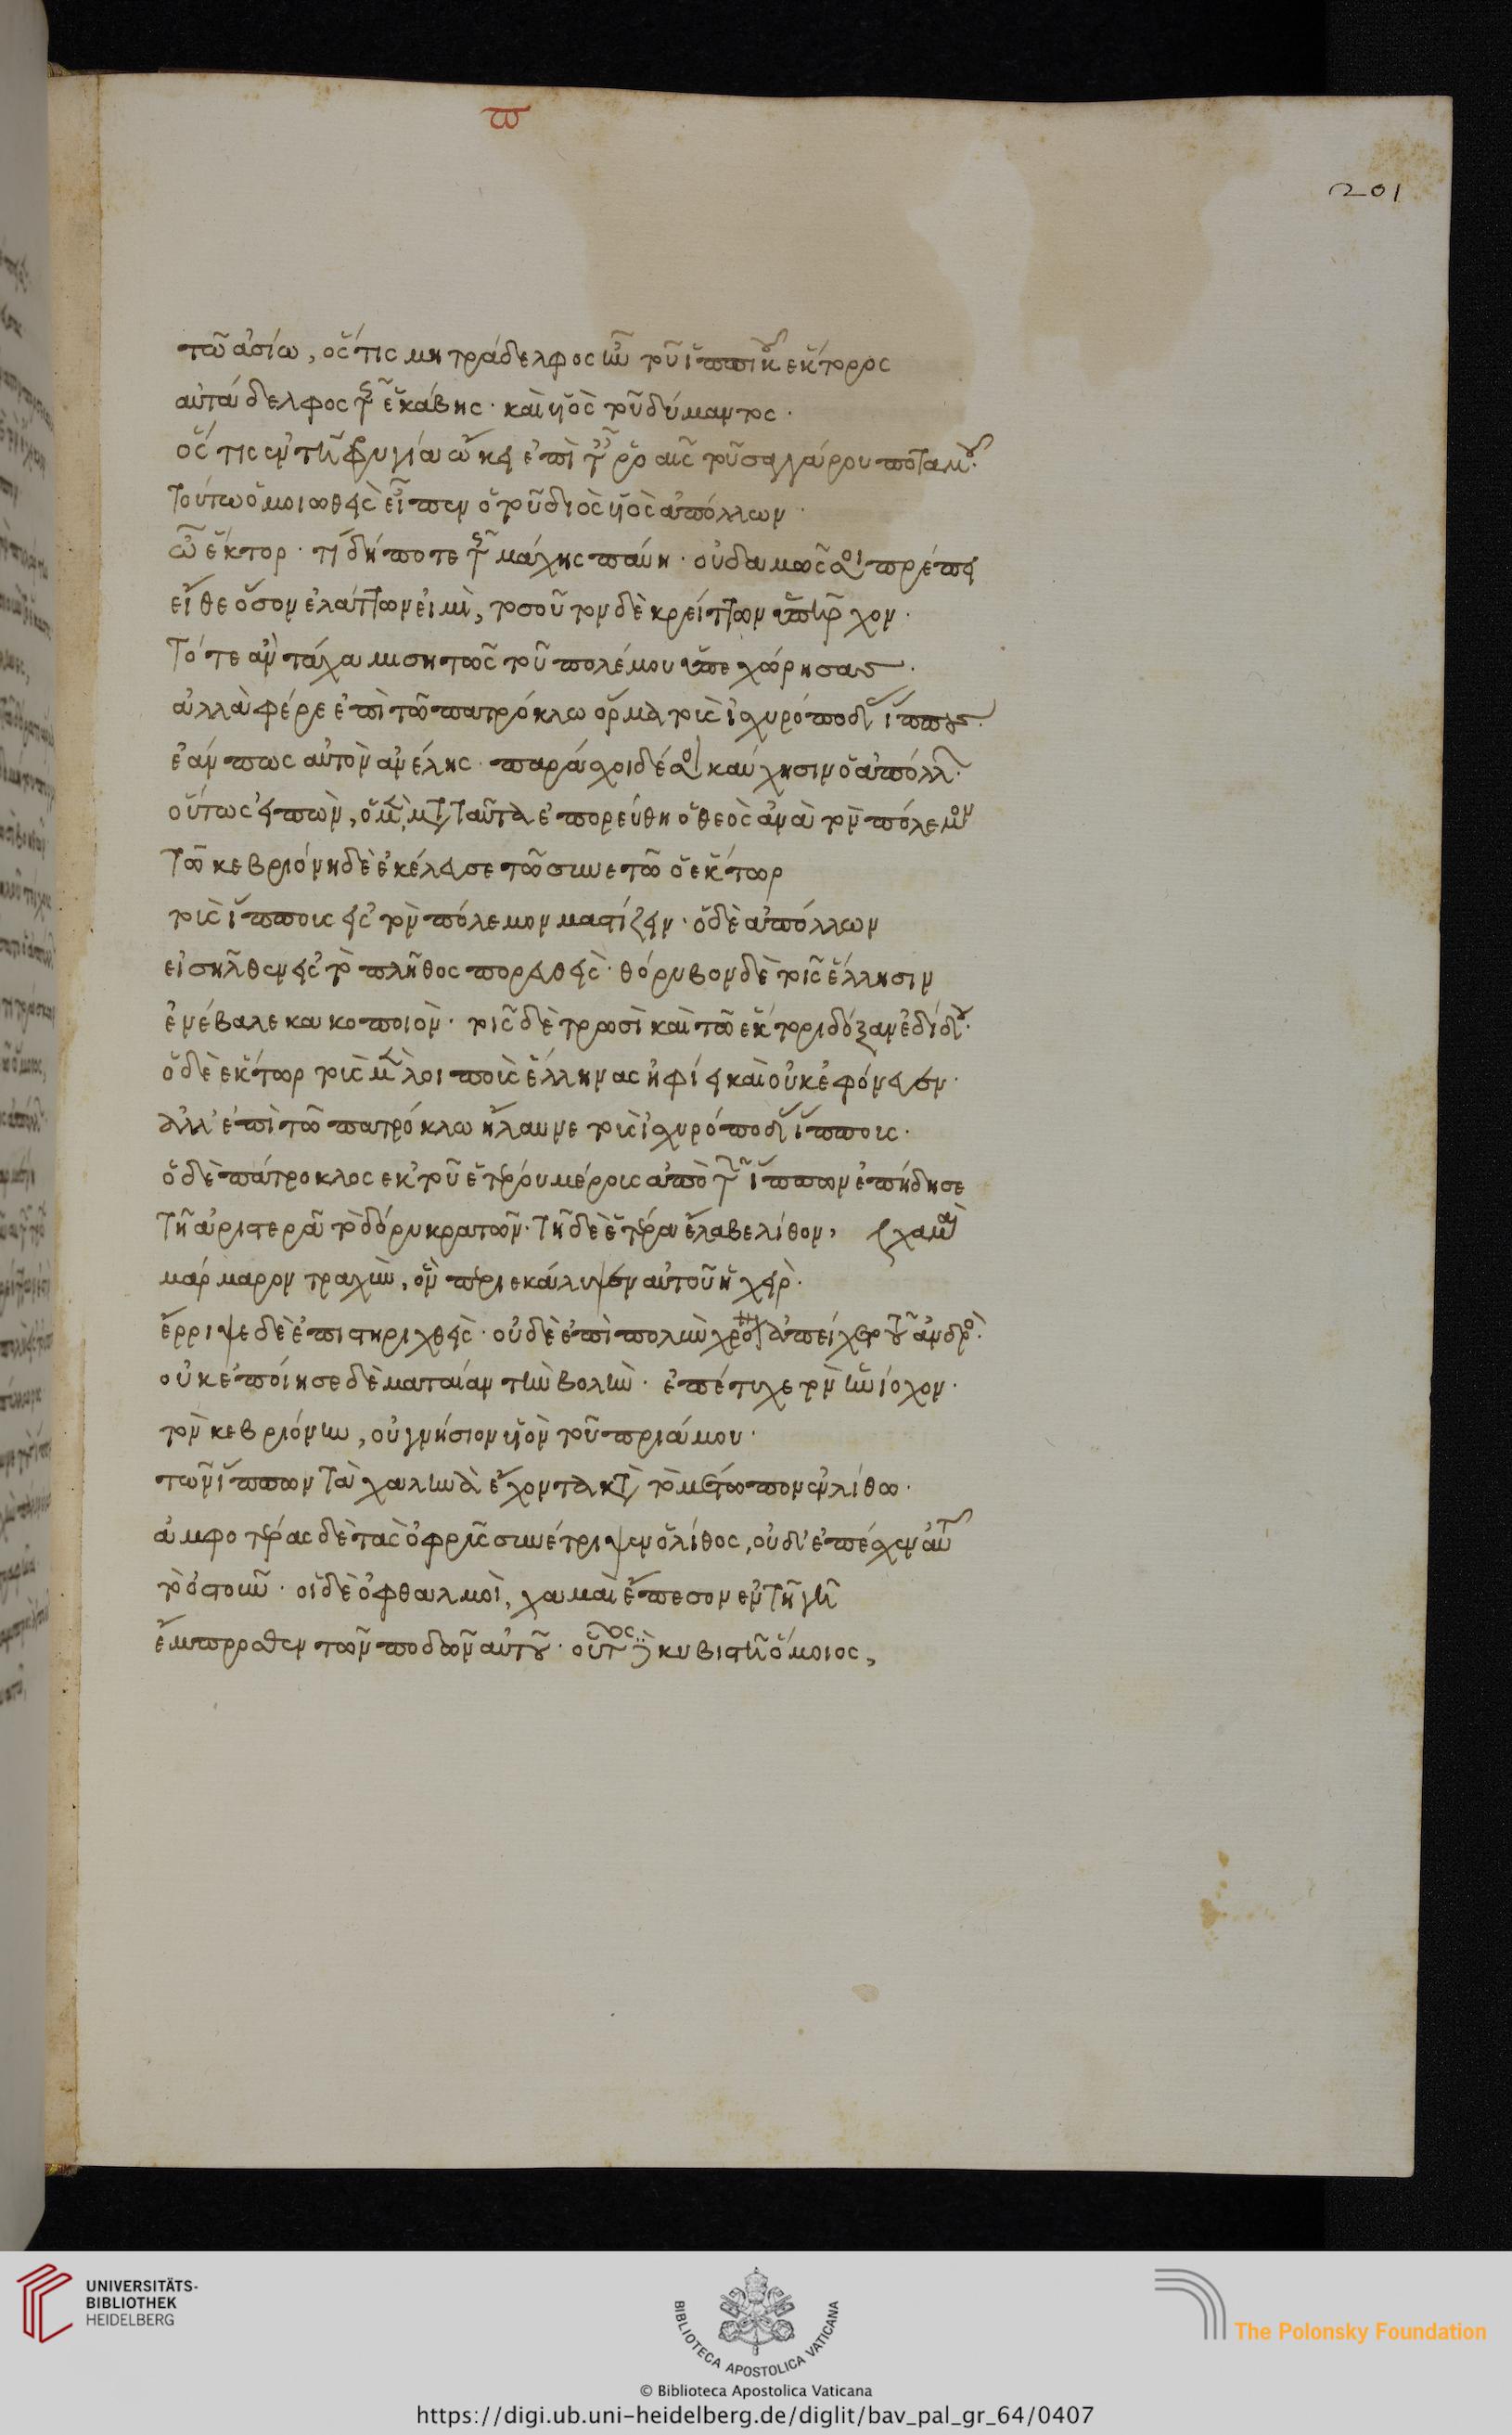 π
201
τῶ ἀσίω, ὅς τις μητράδελφος ἦν τοῦ ἱππικοῦ ἕκτορος
αὐτάδελφος τῆς ἑκάβης· καὶ υἱὸς τοῦ δύμαντος·
ὅς τις ἐν τῆ φρυγία ὤκει ἐπὶ τοῖς ῥοαῖς τοῦ σαγγάρου ποταμοῦ·
τούτω ὁμοιωθεὶς εἶπεν ὁ τοῦ διὸς υἱὸς ἀπόλλων·
ὦ ἕκτορ· τί δήποτε τῆς μάχης παύη· οὐδαμῶς σοι πρέπει
εἴθε ὅσον ἐλάττων εἰμὶ, τοσοῦτον δὲ κρείττων ὑπῆρχον·
τότε ἂν τάχα μισητῶς τοῦ πολέμου ὑπεχώρησας·
ἀλλὰ φέρε ἐπὶ τῶ πατρόκλω ὅρμα τοὺς ἰσχυρόποδας ἵππους·
ἐάν πως αὐτὸν ἀνέλης· παράσχοι δέ σοι καύχησιν ὁ ἀπόλλων·
οὕτως εἰπὼν, ὁ μὲν μετὰ ταῦτα ἐπορεύθη ὁ θεὸς ἀνὰ τὸν πόλεμον
τῶ κεβριόνη δὲ ἐκέλευσε τῶ συνετῶ ὁ ἕκτωρ
τοὺς ἵππους εἰς τὸν πόλεμον μαστίζειν· ὁ δὲ ἀπόλλων
εἰσῆλθεν εἰς τὸ πλῆθος πορευθεὶς· θόρυβον δὲ τοῖς ἕλλησιν
ἐνέβαλε κακοποιὸν· τοῖς δὲ τρωσὶ καὶ τῶ ἕκτορι δόξαν ἐδίδου·
ὁ δὲ ἕκτωρ τοὺς μὲν λοιποὺς ἕλληνας ἠφίει καὶ οὐκ ἐφόνευεν·
ἀλλ' ἐπὶ τῶ πατρόκλω ἤλαυνε τοὺς ἰσχυρόποδας ἵππους·
ὁ δὲ πάτροκλος ἐκ τοῦ ἑτέρου μέρους ἀπὸ τῶν ἵππων ἐπήδησε
τῆ ἀριστερᾶ τὸ δόρυ κρατῶν· τῆ δὲ ἑτέρα ἔλαβε λίθον, χαμαὶ
μάρμαρον τραχὺν, ὃν περιεκάλυψεν αὐτοῦ ἡ χεὶρ·
ἔρριψε δὲ ἐπιστηριχθεὶς· οὐδὲ ἐπὶ πολὺν χρόνον ἀπείχετο τοῦ ἀνδρὸς·
οὐκ ἐποίησε δὲ ματαίαν τὴν βολὴν· ἐπέτυχε τὸν ἡνίοχον·
τὸν κεβριόνην, οὐ γνήσιον υἱὸν τοῦ πριάμου·
τῶν ἵππων τὰ χαλινὰ ἔχοντα κατὰ τὸ μέτωπον ἐν λίθω·
ἀμφοτέρας δὲ τὰς ὀφρῦς συνέτριψεν ὁ λίθος, οὐδ' ἐπέσχεν αὐτ
τὸ ὀστοῦν· οἱ δὲ ὀφθαλμοὶ, χαμαὶ ἔπεσον ἐν τῆ γῆ
ἔμπροσθεν τῶν ποδῶν αὐτοῦ· οὗτος δὲ κυβιστῆ ὅμοιος,
UNIVERSITÄTS-
BIBLIOTHEK
HEIDELBERG
BIBLIOTECA APOSTOLICA VATICANA
© Biblioteca Apostolica Vaticana
The Polonsky Foundation
https://digi.ub.uni-heidelberg.de/diglit/bav_pal_gr_64/0407